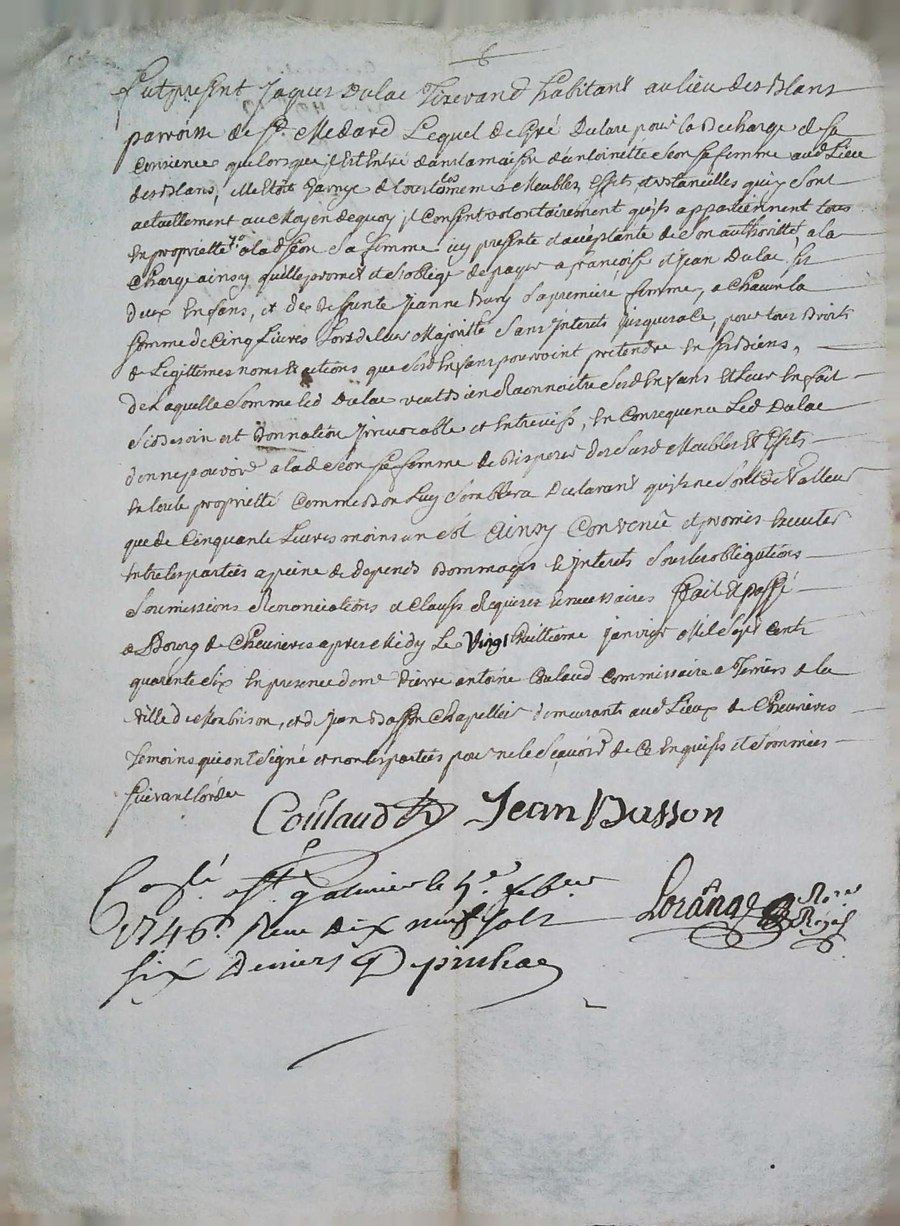 fut present Jaques Dulac Tixerand habitant au lieu des Blans
parroisse de St. Medard Lequel de Gré Declare pour la Decharge de Sa
Conscience que lorsque il est Entré dans la maison d'antoinette Seon Sa femme aud Lieu
des Blans, elle Etoit Garnye de tous les mêmes Meubles, Effets, et Ustancilles qui y Sont
actuellement au Moyen de quoy il Consent volontairement qu'ils appartiennent tous
En propriette a lad Seon Sa femme icy presente et acceptante de Son authorité, a la
Charge ainsy qu'elle promet et s'oblige de payer a francoise et Jean Dulac, Ses
deux Enfans, et de deffunte Jeanne Sa premiere femme, a Chacun la
Somme de Cinq Livres Lors de leur Majorité Sans Interets jusqu'alors, pour tous Droits
de Legittimes noms et actions que Sesd Enfans pourroint pretendre En Ses Biens,
de Laquelle Somme led Dulac veut Bien Reconnoitre Sesd Enfans Et leur En fait
Si Besoin est Donnation Irrevocable et Entrevifs, En Consequence Led Dulac
donne pouvoir a lad Seon Sa femme de Disposer de Susd Meubles Et Effets
En toute propriette Comme Bon Luy Semblera Declarant qu'ils ne Sont de Valleur
que de Cinquante Livres moins un Sol Ainsy Convenu et promis Executer
Entre les parties a peine de depends Dommages Et Interets Sous les obligations
Soumissions Renonciations et Clauses Requises & necessaires fait Et passé
au Bourg de Chevrieres apres Midy Le Vingt huittieme janvier Mil Sept Cents
quarente Six En presence de me Pierre antoine Coulaud Commissaire a Terriers de la
Ville de Monbrison, et de Jean Basson Chapellier demeurants aud Lieux de Chevrieres
Temoins qui ont Signé et non les parties pour ne le Sçavoir de Ce Enquises et Sommées
Suivant l'ordce
Coulaud Jean Basson
Conslé a St. galmier le 4e. febver
1746. Reçu dix neuf sols
six deniers
Lorange Nore Royal